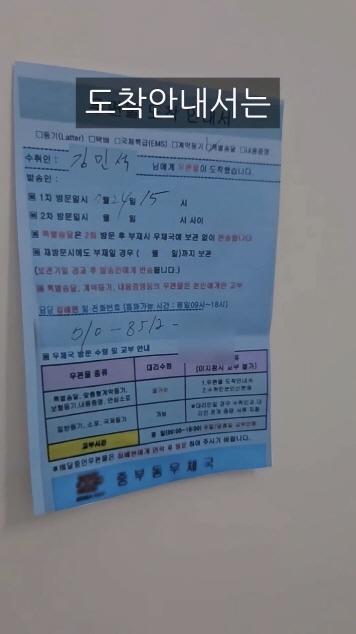 도착안내서는
안내서
□등기(Latter) □택배 □국제특급(EMS) □계약등기 □특별송달 □내용증명
수취인 : 김민석 님에게 우편물이 도착했습니다.
발송인 :
▣ 1차 방문일시 월 24일 15 시
▣ 2차 방문일시 월 일 시 사이
▣ 특별송달은 2회 방문 후 부재시 우체국에 보관 없이 반송됩니다
▣ 재방문시에도 부재일 경우 ( 월 일)까지 보관
(보관기일 경과 후 발송인에게 반송됩니다.)
▣ 특별송달, 계약등기, 내용증명등의 우편물은 본인에게만 교부
담당 집배원 및 전화번호 (통화가능 시간 : 평일09시~18시)
010-8512-
▣ 우체국 방문 수령 및 교부 안내
우편물 종류 대리수령 (미지참시 교부 불가)
특별송달, 맞춤형계약등기, 보험등기,내용증명, 안심소포 불가능 1.우편물 도착안내서 2.수취인본인신분증
일반등기, 소포, 국제등기 가능
교부시간
중부동우체국